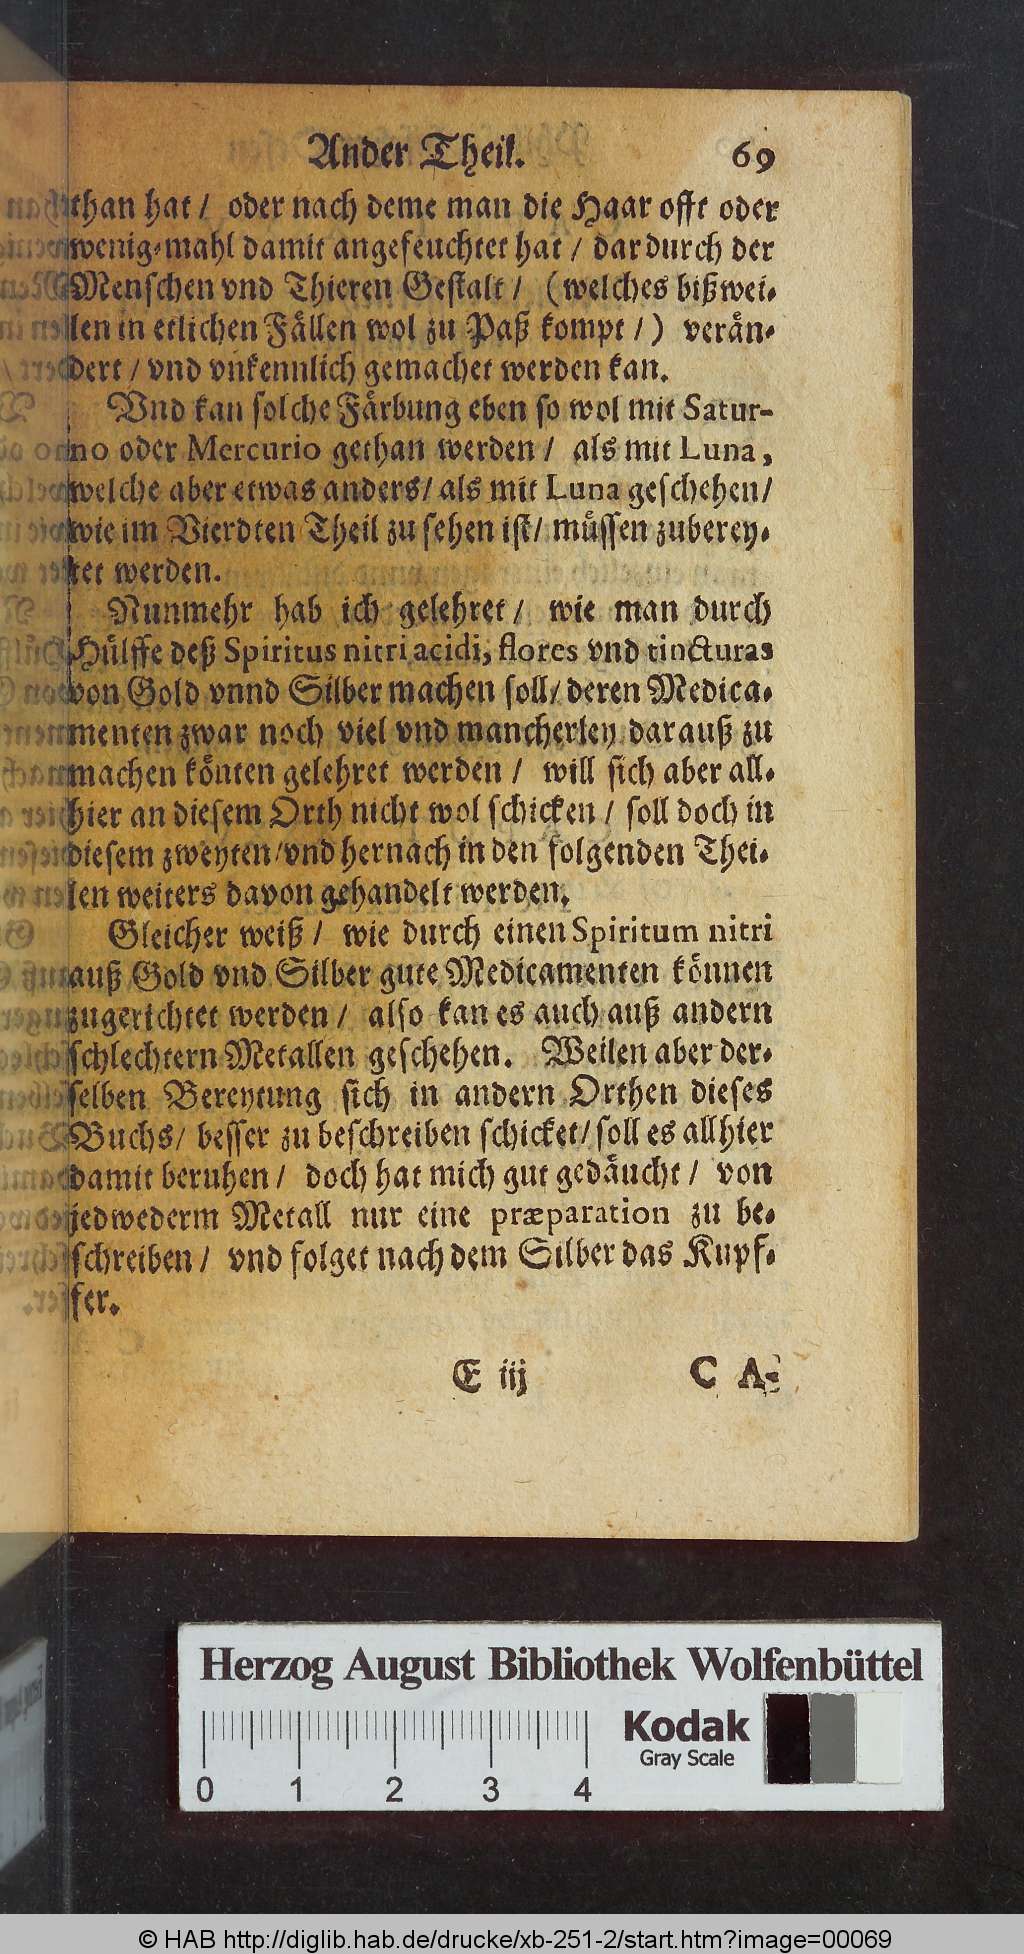 Ander Theil. 69
than hat / oder nach deme man die Haar offt oder
wenig-mahl damit angefeuchtet hat / dardurch der
Menschen vnd Thieren Gestalt / (welches bißwei-
len in etlichen Fällen wol zu Paß kompt /) verän-
dert / vnd vnkennlich gemachet werden kan.
Vnd kan solche Färbung eben so wol mit Satur-
no oder Mercurio gethan werden / als mit Luna,
welche aber etwas anders / als mit Luna geschehen /
wie im Vierdten Theil zu sehen ist / müssen zuberey-
tet werden.
Nunmehr hab ich gelehret / wie man durch
Hülffe deß Spiritus nitri acidi, flores vnd tincturas
von Gold vnnd Silber machen soll / deren Medica-
menten zwar noch viel vnd mancherley darauß zu
machen könten gelehret werden / will sich aber all-
hier an diesem Orth nicht wol schicken / soll doch in
diesem zweyten / vnd hernach in den folgenden Thei-
len weiters davon gehandelt werden.
Gleicher weiß / wie durch einen Spiritum nitri
auß Gold vnd Silber gute Medicamenten können
zugerichtet werden / also kan es auch auß andern
schlechtern Metallen geschehen. Weilen aber der-
selben Bereytung sich in andern Orthen dieses
Buchs / besser zu beschreiben schicket / soll es allhier
damit beruhen / doch hat mich gut gedäucht / von
jedwederm Metall nur eine præparation zu be-
schreiben / vnd folget nach dem Silber das Kupf-
fer.
E iij C A-
Herzog August Bibliothek Wolfenbüttel
Kodak
Gray Scale
0 1 2 3 4
© HAB http://diglib.hab.de/drucke/xb-251-2/start.htm?image=00069